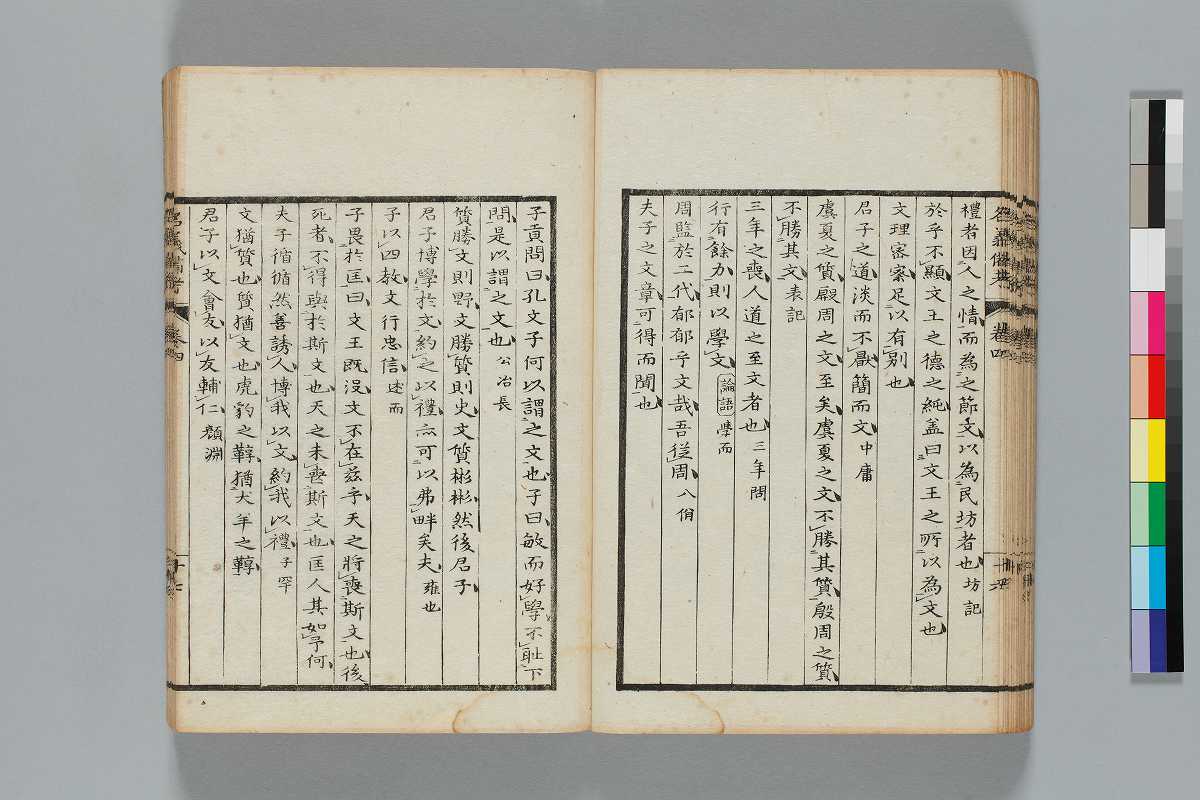 禮者因人之情而為之節文以為民坊者也坊記
於乎不顯文王之德之純盖曰文王之所以為文也
文理密察足以有別也
君子之道淡而不厭簡而文中庸
虞夏之質殷周之文至矣虞夏之文不勝其質殷周之質
不勝其文表記
三年之喪人道之至文者也三年問
行有餘力則以學文論語學而
周監於二代郁郁乎文哉吾從周八佾
夫子之文章可得而聞也
子貢問曰孔文子何以謂之文也子曰敏而好學不耻下
問是以謂之文也公冶長
質勝文則野文勝質則史文質彬彬然後君子
君子博學於文約之以禮亦可以弗畔矣夫雍也
子以四教文行忠信述而
子畏於匡曰文王既沒文不在茲乎天之將喪斯文也後
死者不得與於斯文也天之未喪斯文也匡人其如予何
夫子循循然善誘人博我以文約我以禮子罕
文猶質也質猶文也虎豹之鞟猶犬羊之鞟
君子以文會友以友輔仁顏淵
卷四